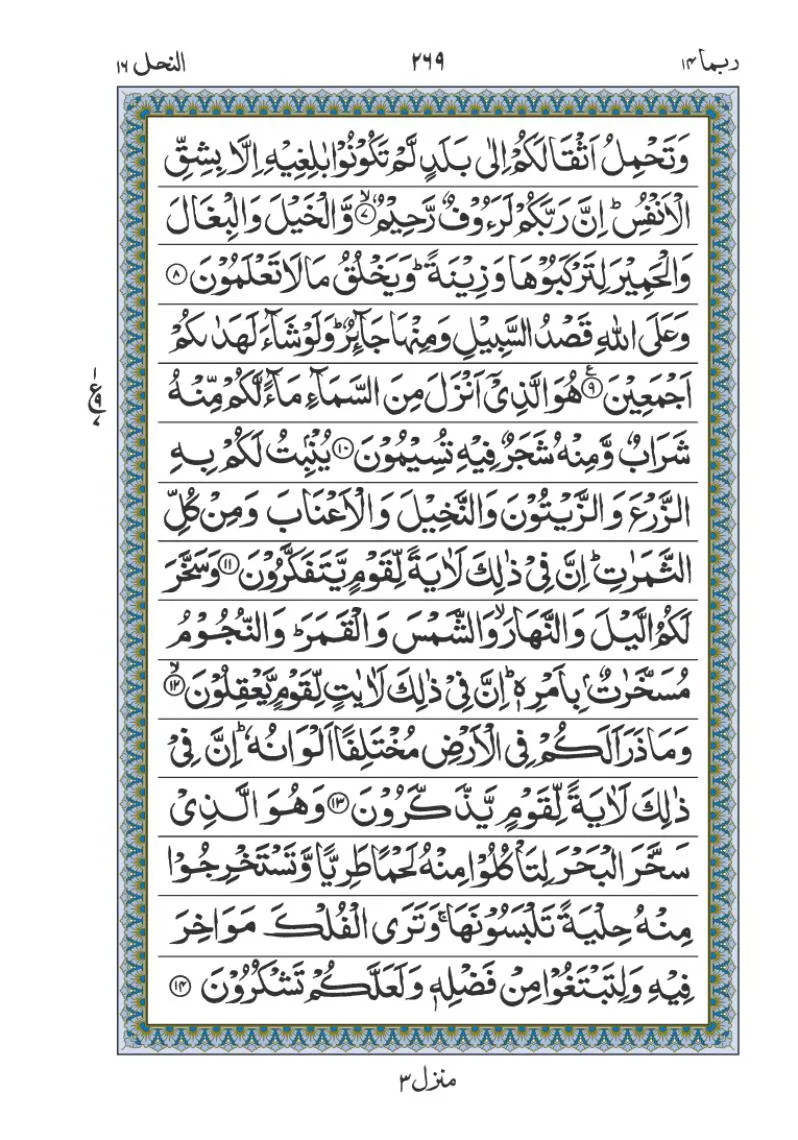 ربما ۱۴ ۲۶۹ النحل ۱۶
وَتَحْمِلُ اَثْقَالَكُمْ اِلٰى بَلَدٍ لَّمْ تَكُوْنُوْا بٰلِغِيْهِ اِلَّا بِشِقِّ
الْاَنْفُسِ ؕ اِنَّ رَبَّكُمْ لَرَءُوْفٌ رَّحِيْمٌ ۙ‏﴿۷﴾ وَّالْخَيْلَ وَالْبِغَالَ
وَالْحَمِيْرَ لِتَرْكَبُوْهَا وَزِيْنَةً ؕ وَيَخْلُقُ مَا لَا تَعْلَمُوْنَ ﴿۸﴾
وَعَلَى اللّٰهِ قَصْدُ السَّبِيْلِ وَمِنْهَا جَآئِرٌ ؕ وَلَوْ شَآءَ لَهَدٰٮكُمْ
اَجْمَعِيْنَ ﴿۹﴾ ع هُوَ الَّذِىْۤ اَنْزَلَ مِنَ السَّمَآءِ مَآءً لَّكُمْ مِّنْهُ
شَرَابٌ وَّمِنْهُ شَجَرٌ فِيْهِ تُسِيْمُوْنَ ﴿۱۰﴾ يُنْۢبِتُ لَكُمْ بِهِ
الزَّرْعَ وَالزَّيْتُوْنَ وَالنَّخِيْلَ وَالْاَعْنَابَ وَمِنْ كُلِّ
الثَّمَرٰتِ ؕ اِنَّ فِىْ ذٰلِكَ لَاٰيَةً لِّقَوْمٍ يَّتَفَكَّرُوْنَ ﴿۱۱﴾ وَسَخَّرَ
لَكُمُ الَّيْلَ وَالنَّهَارَ ۙ وَالشَّمْسَ وَالْقَمَرَ ؕ وَالنُّجُوْمُ
مُسَخَّرٰتٌۢ بِاَمْرِهٖ ؕ اِنَّ فِىْ ذٰلِكَ لَاٰيٰتٍ لِّقَوْمٍ يَّعْقِلُوْنَ ۙ‏﴿۱۲﴾
وَمَا ذَرَاَ لَكُمْ فِى الْاَرْضِ مُخْتَلِفًا اَلْوَانُهٗ ؕ اِنَّ فِىْ
ذٰلِكَ لَاٰيَةً لِّقَوْمٍ يَّذَّكَّرُوْنَ ﴿۱۳﴾ وَهُوَ الَّذِىْ
سَخَّرَ الْبَحْرَ لِتَاْكُلُوْا مِنْهُ لَحْمًا طَرِيًّا وَّتَسْتَخْرِجُوْا
مِنْهُ حِلْيَةً تَلْبَسُوْنَهَا ۚ وَتَرَى الْفُلْكَ مَوَاخِرَ
فِيْهِ وَلِتَبْتَغُوْا مِنْ فَضْلِهٖ وَلَعَلَّكُمْ تَشْكُرُوْنَ ﴿۱۴﴾
منزل ۳